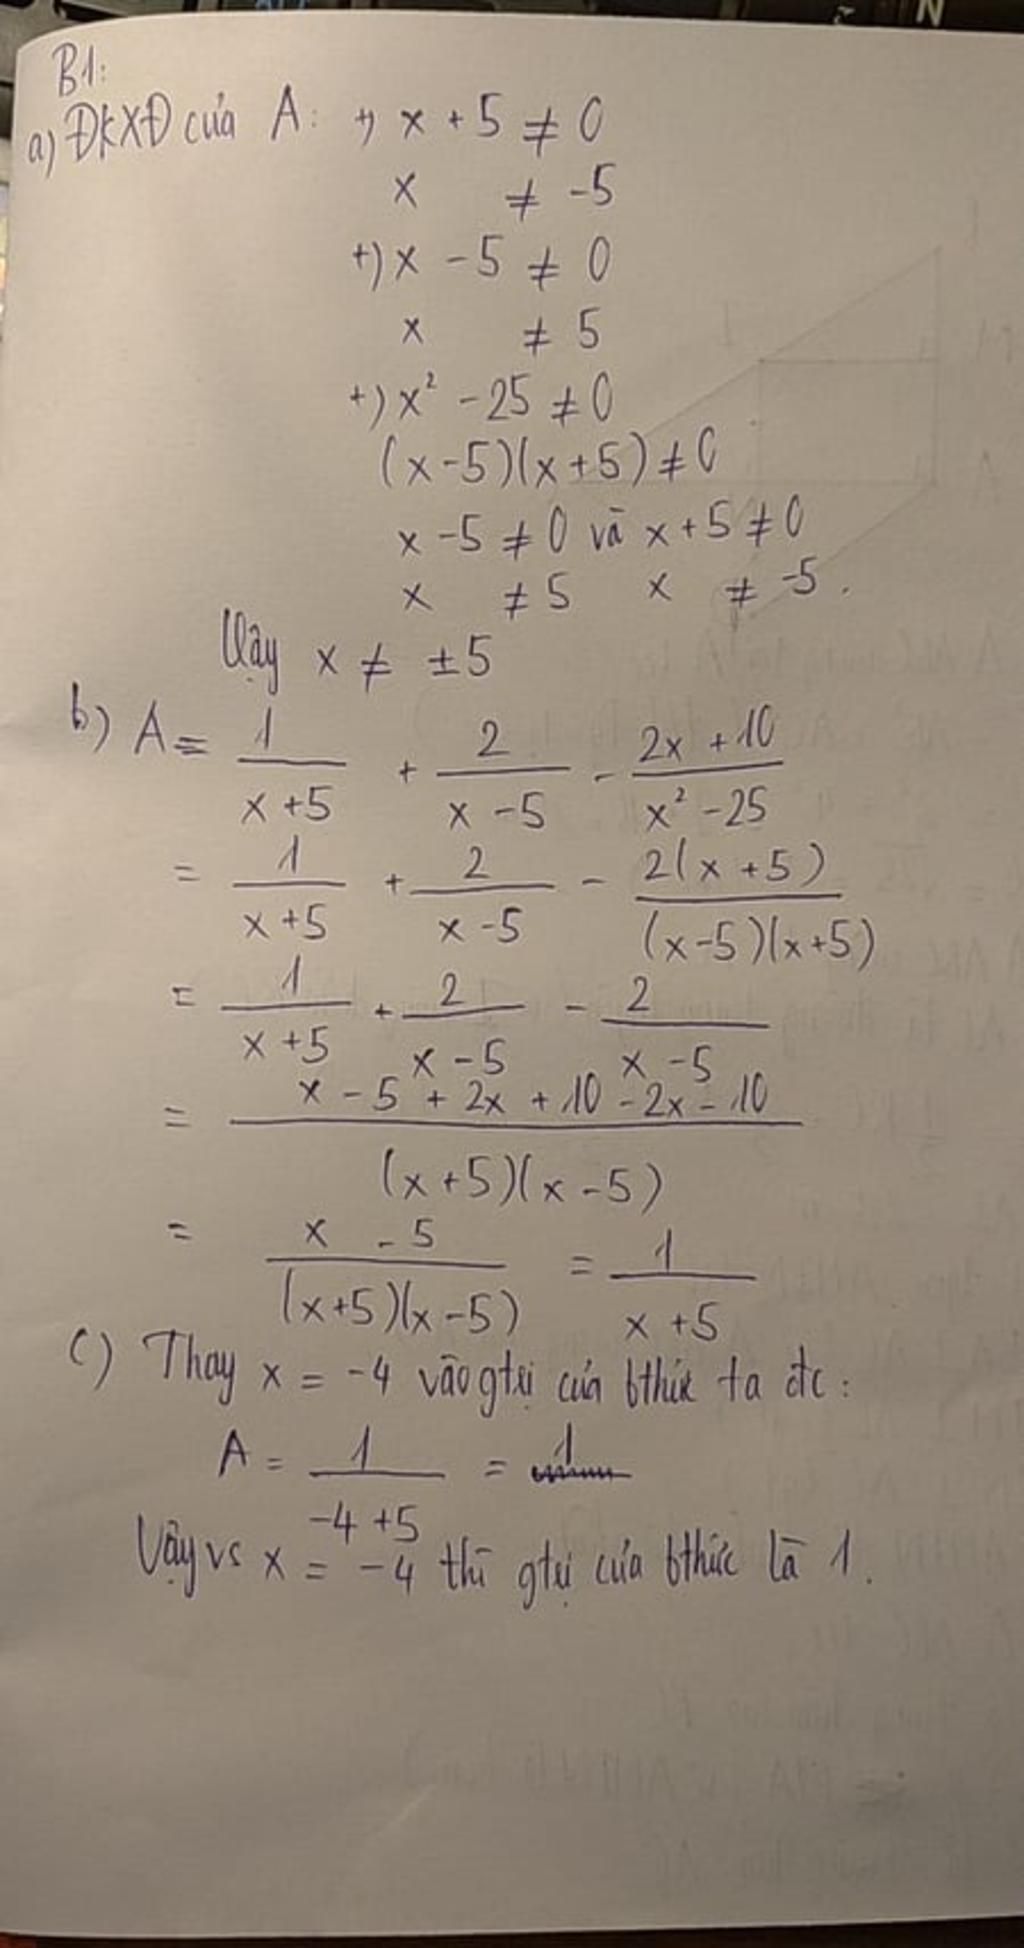 N
B1:
a) ĐKXĐ của A: +) x + 5 ≠ 0
x ≠ -5
+) x - 5 ≠ 0
x ≠ 5
+) x² - 25 ≠ 0
(x-5)(x+5) ≠ 0
x - 5 ≠ 0 và x + 5 ≠ 0
x ≠ 5 x ≠ -5.
Vậy x ≠ ±5
b) A = 1/(x+5) + 2/(x-5) - (2x+10)/(x²-25)
= 1/(x+5) + 2/(x-5) - 2(x+5)/(x-5)(x+5)
= 1/(x+5) + 2/(x-5) - 2/(x-5)
= (x - 5 + 2x + 10 - 2x - 10)/(x+5)(x-5)
= (x - 5)/(x+5)(x-5) = 1/(x+5)
c) Thay x = -4 vào gtrị của bthức ta đc:
A = 1/(-4+5) = 1
Vậy vs x = -4 thì gtrị của bthức là 1.